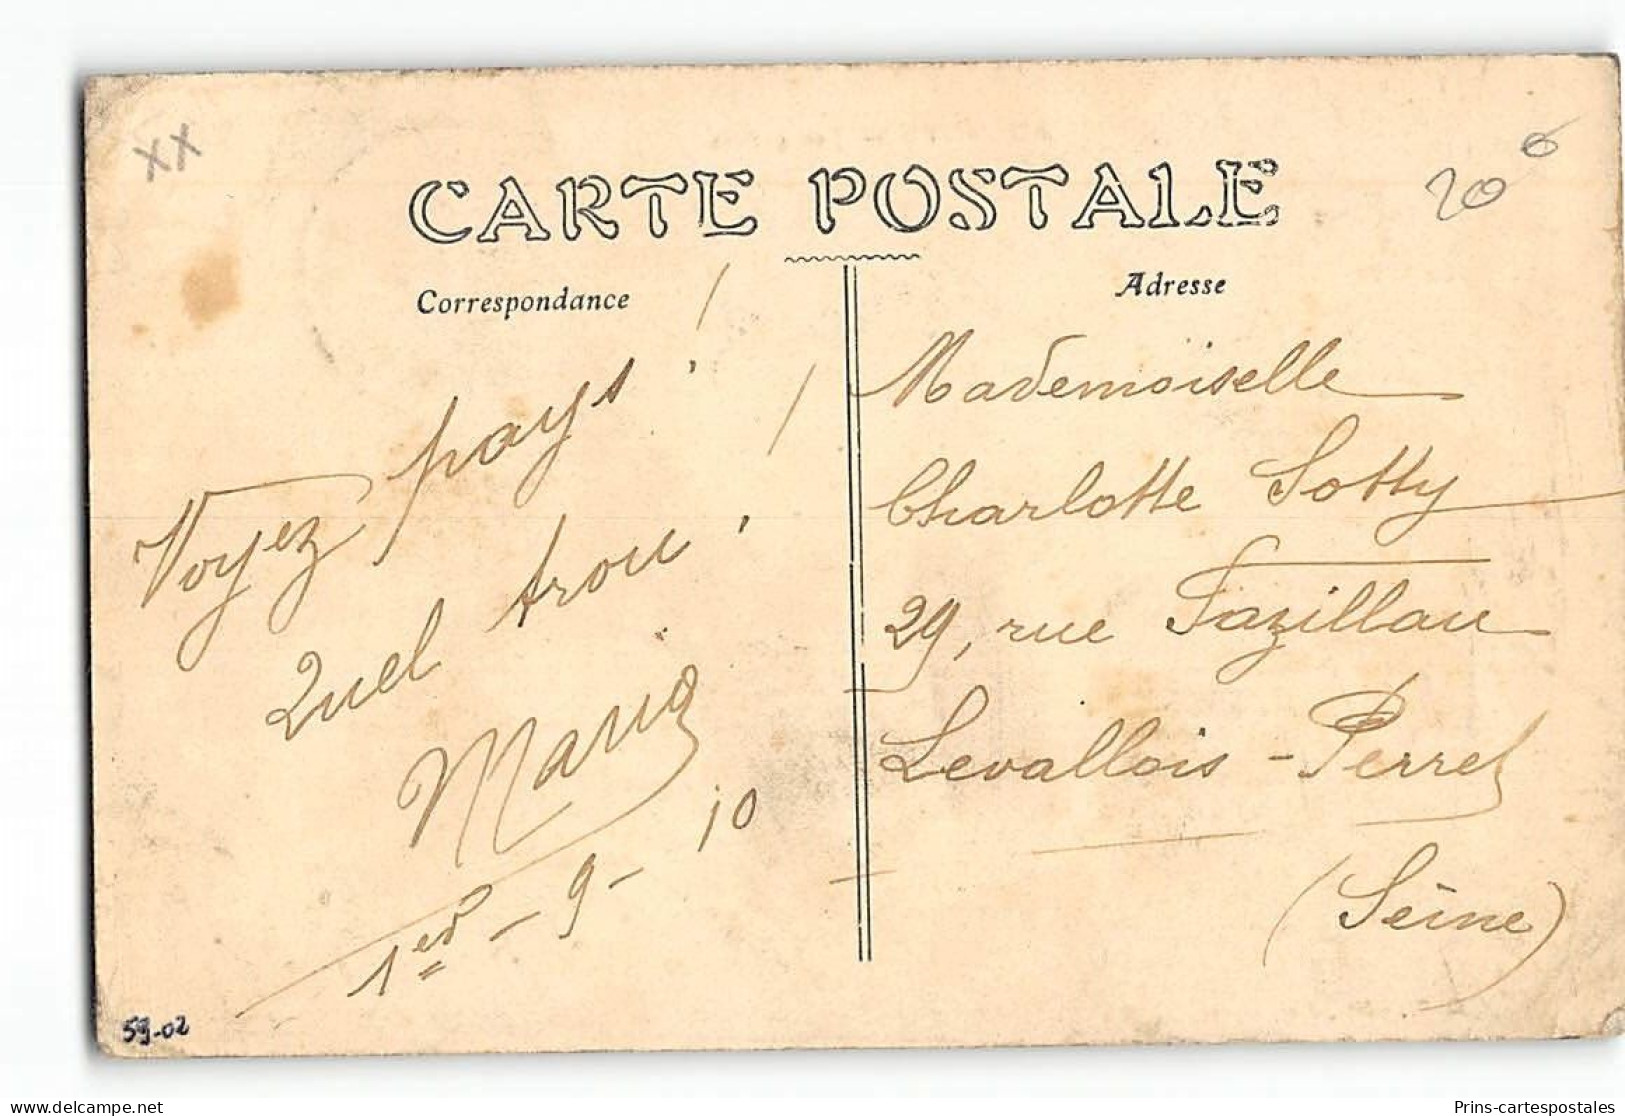 XX
20
CARTE POSTALE
Correspondance
Voyez pays !
Quel trou !
1er - 9 - 10
59-02
Adresse
Mademoiselle
Charlotte Sotty
29, rue Fazillau
Levallois - Perret
(Seine)
Prins-cartespostales
delcampe.net